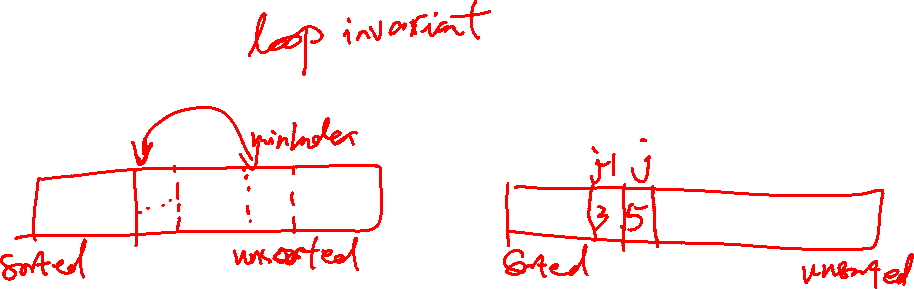 loop invariant
minIndex
j-1 j
3 5
sorted unsorted
sorted unsorted